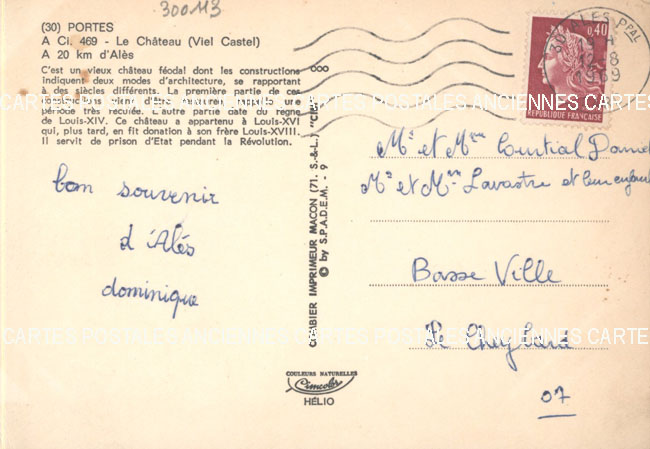 300113
(30) PORTES
A Ci. 469 - Le Château (Viel Castel)
A 20 km d'Alès
C'est un vieux château féodal dont les constructions
indiquent deux modes d'architecture, se rapportant
à des siècles différents. La première partie de ces
période très reculée. L'autre partie date du règne
de Louis-XIV. Ce château a appartenu à Louis-XVI
qui, plus tard, en fit donation à son frère Louis-XVIII.
Il servit de prison d'Etat pendant la Révolution.
bon souvenir
d'Alès
dominique
COMBIER IMPRIMEUR MACON (71. S.-&-L.) "CIM"
© by S.P.A.D.E.M. - 9
COULEURS NATURELLES
Cimcolor
HÉLIO
30 ALES Ppal
1969
0,40
REPUBLIQUE FRANÇAISE
Mr et Mme Courtial
Mr et Mme Lavastre et leurs enfants
Basse Ville
Le Cheylard
07
CARTES POSTALES ANCIENNES CARTES POSTALES ANCIENNES CARTES
CARTES POSTALES ANCIENNES CARTES POSTALES ANCIENNES CARTES